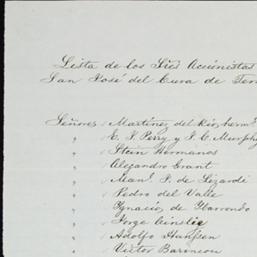 Lista de los Sres Accionistas
San José del Cura de
Señores Martinez del Rio, herm
" E. J. Perry y J. C. Murphy
" Stein Hermanos
" Alejandro Grant
" Manl. F. de Lizardi
" Pedro del Valle
" Ygnacio, de Ybarrondo
" Jorge Ainslie
" Adolfo Hanssen
" Victor Barincou